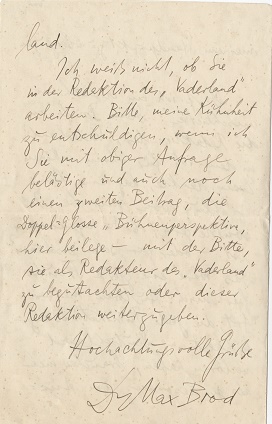 land.
Ich weiß nicht, ob Sie
in der Redaktion des „Vaderland"
arbeiten. Bitte, meine Kühnheit
zu entschuldigen, wenn ich
Sie mit obiger Anfrage
belästige und auch noch
einen zweiten Beitrag, die
Doppel-Glosse „Bühnenperspektiven,
hier beilege – mit der Bitte,
sie als Redakteur des „Vaderland"
zu begutachten oder dieser
Redaktion weiterzugeben.
Hochachtungsvolle Grüße
Dr Max Brod